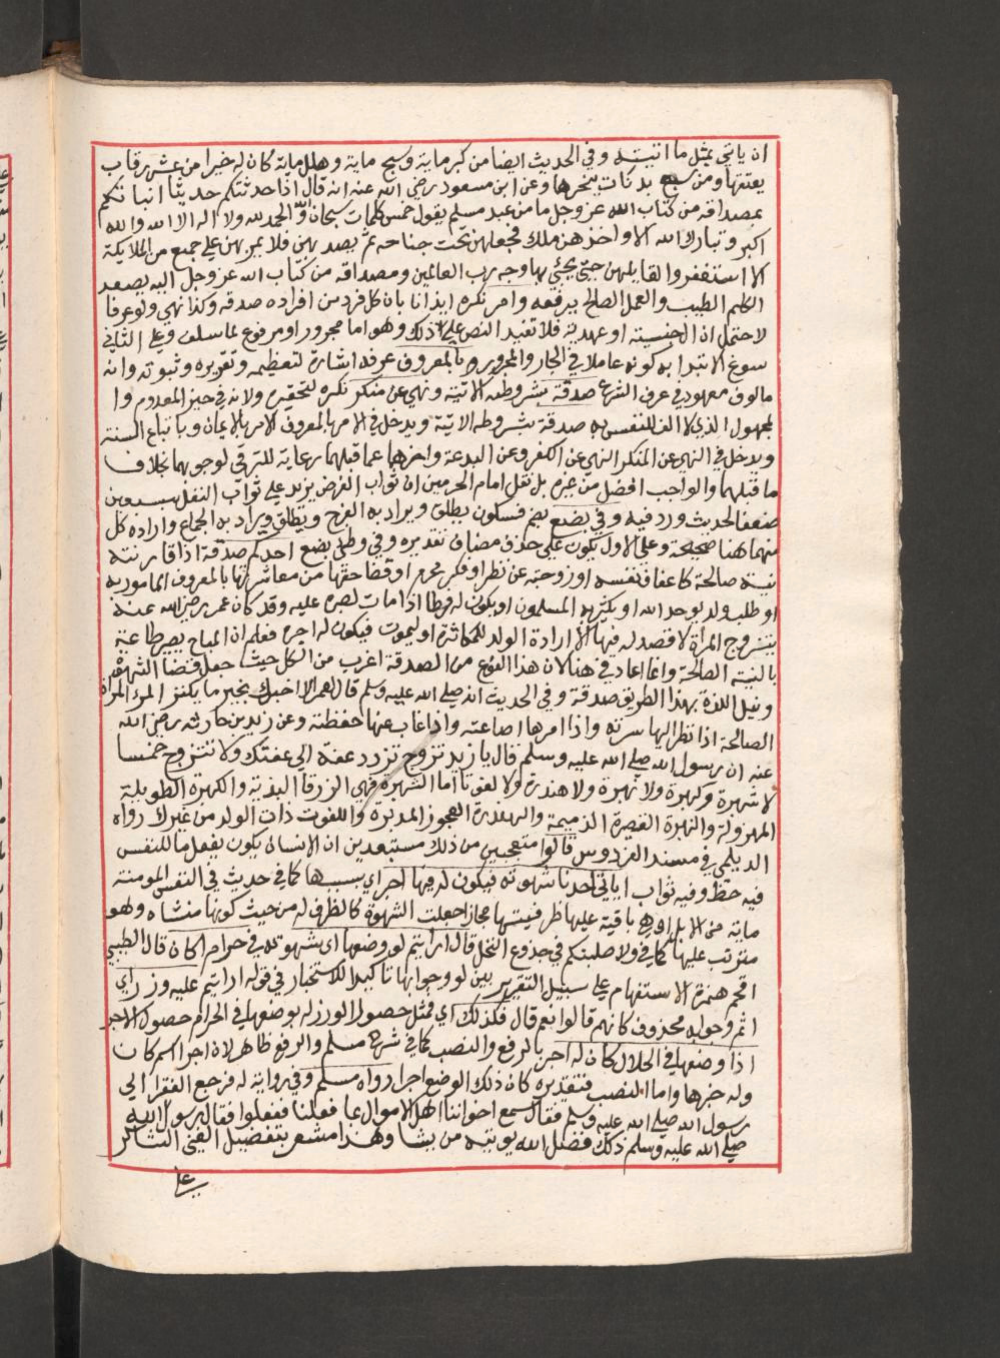 ان ياتي بمثل ما اتيتـه وفي الحديث ايضا من كبر ماية وسبح ماية وهلل ماية كان له خيرا من عشر رقاب
يعتقها ومن سبع بدنات ينحرها وعن ابن مسعود رضي الله عنه انه قال اذا حدثتكم حديثا انباتكم
بمصداقه من كتاب الله عز وجل ما من عبد مسلم يقول خمس كلمات سبحان الله والحمد لله ولا اله الا الله والله
اكبر وتبارك الله الا واخذهن ملك فجعلهن تحت جناحه ثم يصعد بهن فلا يمر بهن على جمع من الملايكة
الا استغفروا لقايلهن حتى يحيي بها وجه رب العالمين ومصداقه من كتاب الله عز وجل اليه يصعد
الكلم الطيب والعمل الصالح يرفعه وامر نكره ايذانا بان كل فرد من افراده صدقه وكذا نهي ولو عرفا
لاحتمل ان الجنسيته او عهدية فلا تفيد النص على ذلك وهو اما مجرور او مرفوع لما سلف وعلى الثاني
سوغ الابتدا به كونه عاملا في الجار والمجرور وبالمعروف عرفه اشارة لتعظيمه وتقريره وثبوته وانه
مالوف معهود في عرف الشرع صدقة بشروطه الاتية ونهي عن منكر نكره لتحقيره ولانه في حيز المعدوم وا
لمجهول الذي لا الف للنفس به صدقة بشروطه الاتية ويدخل في الامر بالمعروف الامر بالايمان وباتباع السنة
ويدخل في النهي عن المنكر النهي عن الكفر وعن البدعة واخرهما عما قبلهما رعاية للترقي لوجوبهما بخلاف
ما قبلهما والواجب افضل من غيره بل نقل امام الحرمين ان ثواب الفرض يزيد على ثواب النفل بسبعين
ضعفا لحديث ورد فيه وفي بضع بضم فسكون يطلق ويراد به الفرج ويطلق ويراد به الجماع وارادة كل
منهما هنا صحيحة وعلى الاول يكون على حذف مضاف تقديره وفي وطئ بضع احدكم صدقة اذا قارنته
نية صالحة كاعفاف نفسه او زوجته عن نظر او فكر محرم او قضا حقها من معاشرتها بالمعروف المامور به
او طلب ولد يوحد الله او يكثر به المسلمون او يكون له فرطا اذا مات لصبره عليه وقد كان عمر رضي الله عنه
يتزوج المراة لا قصد له فيها الا ارادة الولد للمكاثرة او ليموت فيكون له اجره فعلم ان المباح يصير طاعة
بالنية الصالحة وانما اعاد في هنا لان هذا النوع من الصدقة اغرب من الكل حيث جعل قضا الشهوة
ونيل اللذة بهذا الطريق صدقة وفي الحديث انه صلى الله عليه وسلم قال لعمر الا اخبرك بخير ما يكنز المرء المراة
الصالحة اذا نظر اليها سرته واذا امرها اطاعته واذا غاب عنها حفظته وعن زيد بن حارثه رضي الله
عنه ان رسول الله صلى الله عليه وسلم قال يا زيد تزوج تزدد عفة الى عفتك ولا تتزوج خمسا
لا شهبرة ولا لهبرة ولا نهبرة ولا هندرة ولا لفوتا اما الشهبرة فهي الزرقا البذية واللهبرة الطويلة
المهزولة والنهبرة القصيرة الذميمة والهندرة العجوز المدبرة واللفوت ذات الولد من غيرك رواه
الديلمي في مسند الفردوس قالوا متعجبين من ذلك مستبعدين ان الانسان يكون بفعل ما للنفس
فيه حظ وفيه ثواب اياتي احدنا شهوته فيكون له فيها اجر اي بسببها كما في حديث في النفس المومنة
ماية من الابل او هي باقية على ظرفيتها مجازا جعلت الشهوة كالظرف له من حيث كونها منشاه وهو
مترتب عليها كما في ولاصلبنكم في جذوع النخل قال ارايتم لو وضعها اي شهوته في حرام اكان قال الطيبي
اقحم همزة الاستفهام على سبيل التقرير بين لو وجوابها تاكيدا للاستخبار في قوله ارايتم عليه وزر اي
اثم وجوابه محذوف كانهم قالوا نعم قال فكذلك اي فمثل حصول الوزر له بوضعها في الحرام حصول الاجر
اذا وضعها في الحلال كان له اجر بالرفع والنصب كما في شرح مسلم والرفع ظاهر لان اجرا اسم كان
وله خبرها واما النصب فتقديره كان ذلك الوضع اجرا رواه مسلم وفي رواية له فرجع الفقرا الى
رسول الله صلى الله عليه وسلم فقالوا سمع اخواننا اهل الاموال بما فعلنا ففعلوا فقال رسول الله
صلى الله عليه وسلم ذلك فضل الله يوتيه من يشا وهذا مشعر بتفضيل الغني الشاكر
على